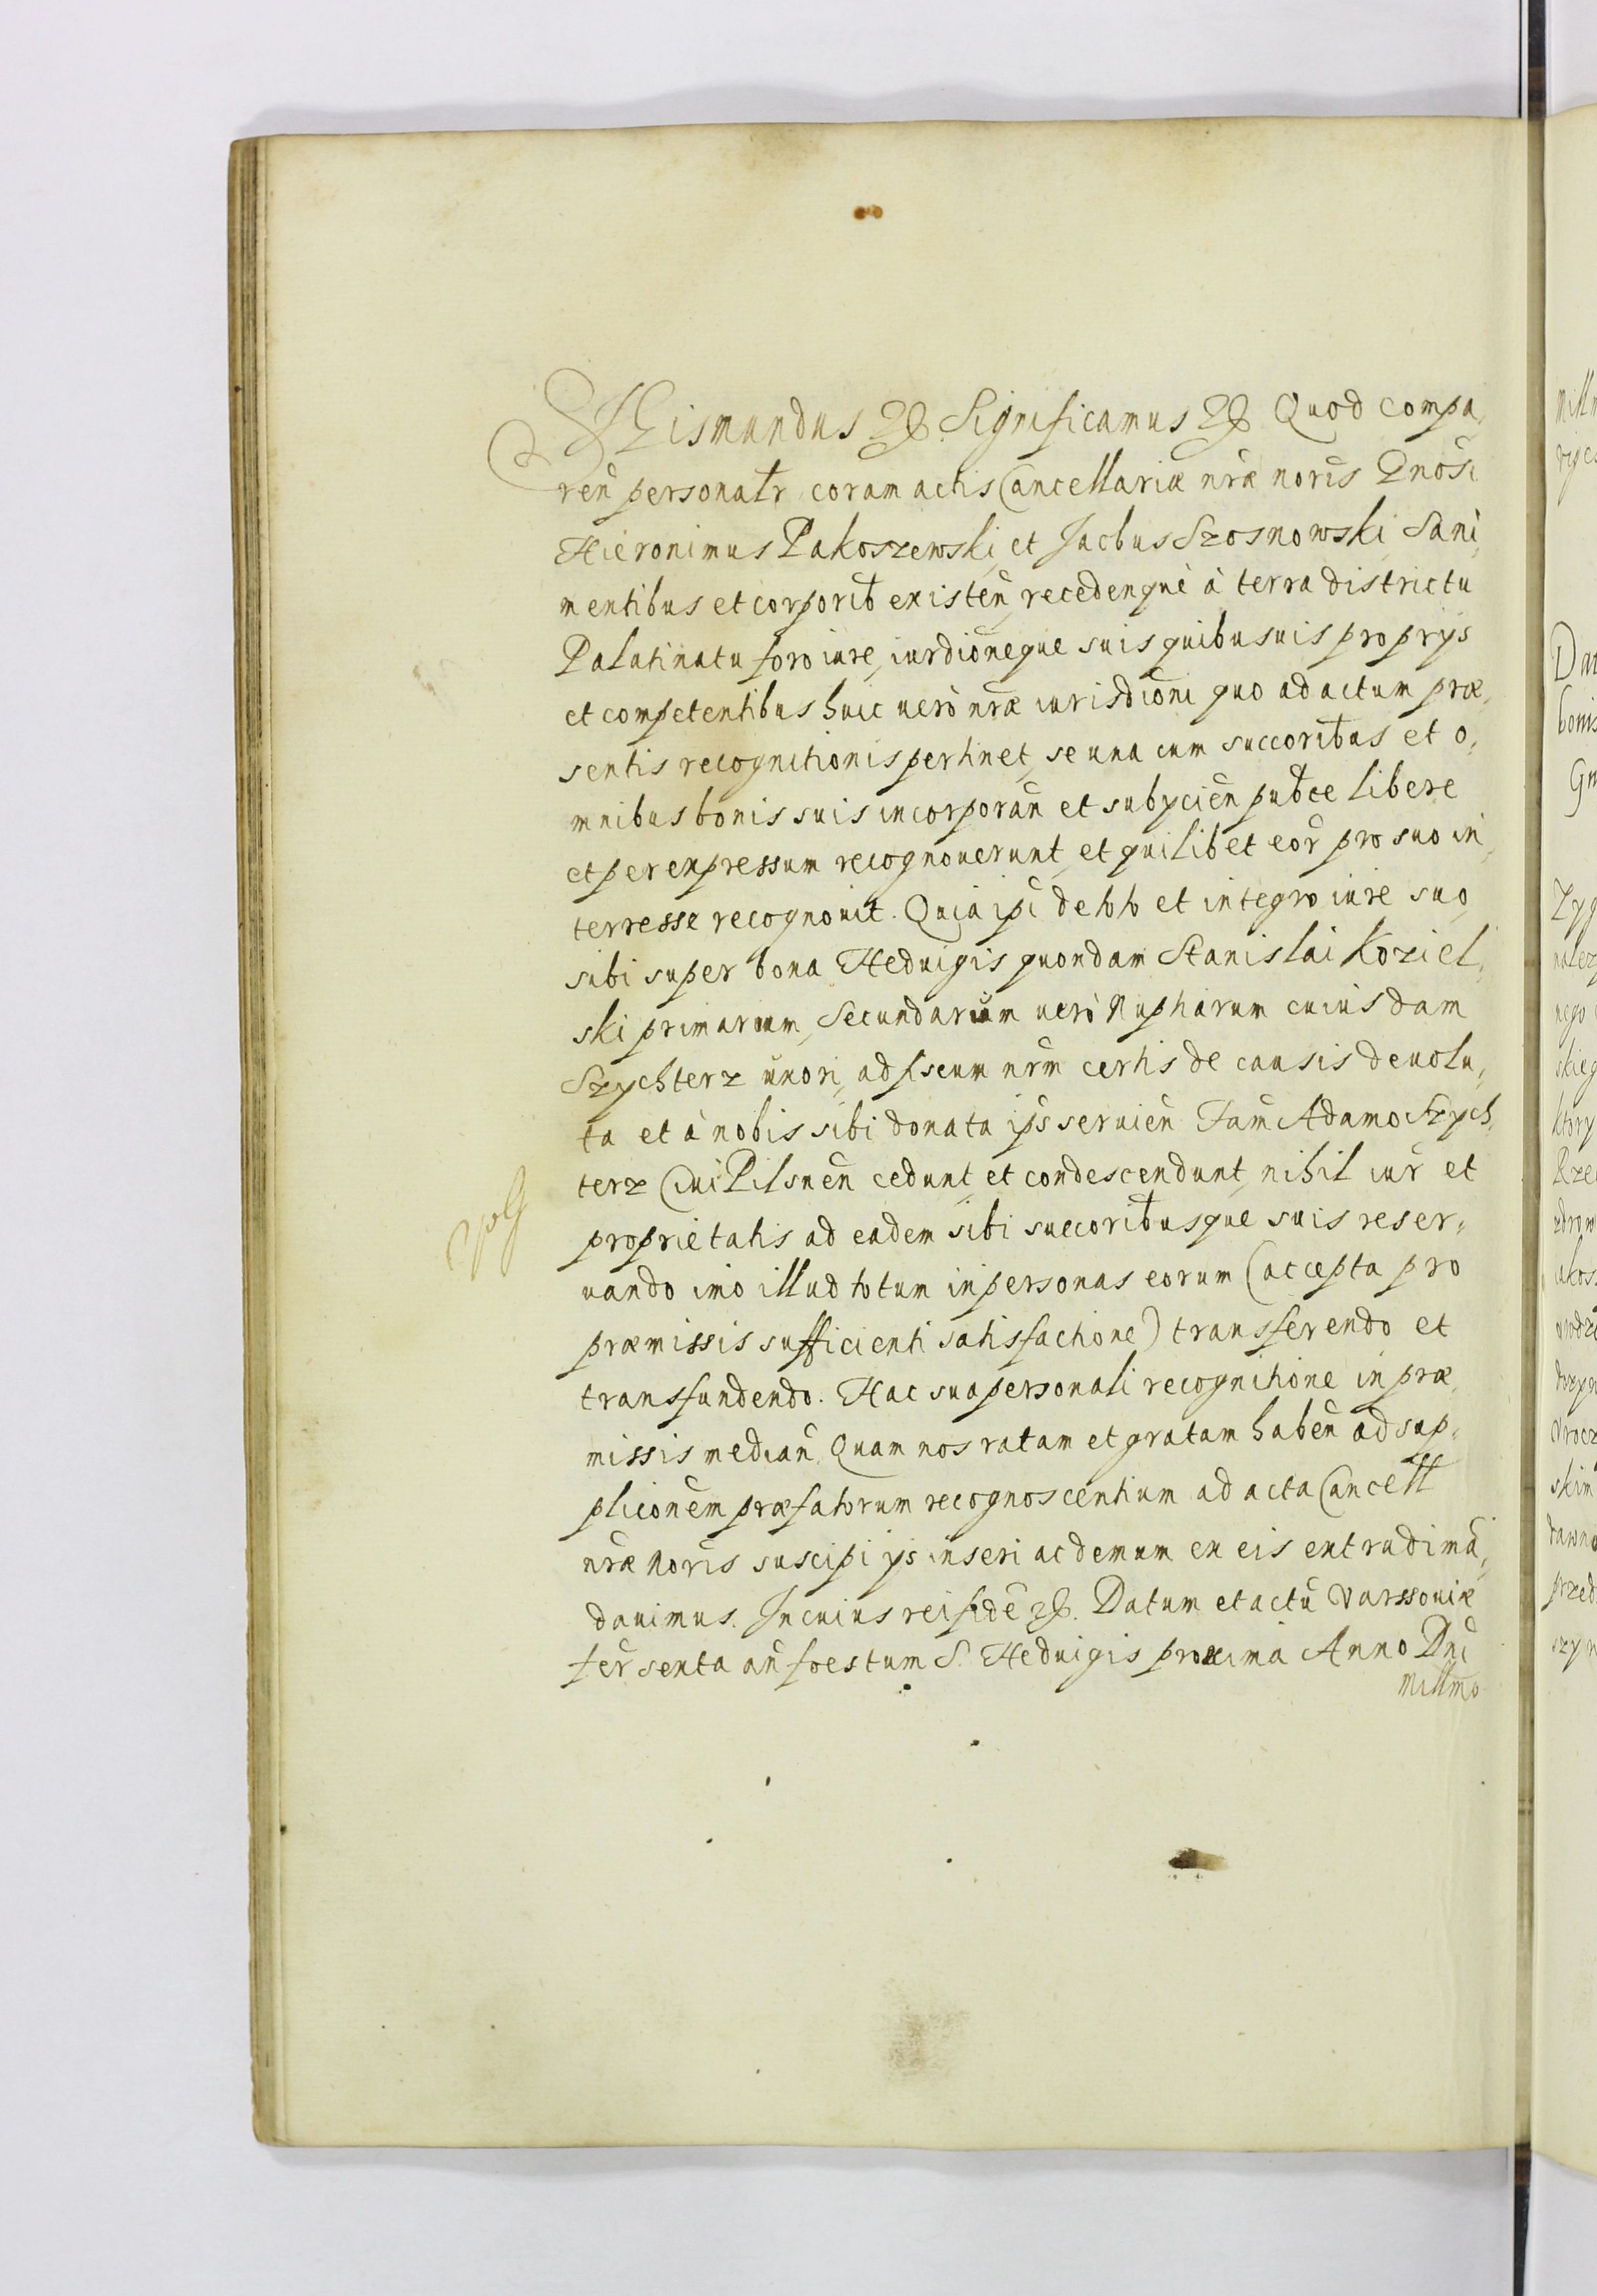 SGismundus &c. Significamus &c Quod compa,
ren̄ personatr coram actis Cancellariæ nr̄æ noris Gnosi
Hieronimus Pakoszewski, et Jacbus Szosnowski Sani
mentibus et corporib existen̄, recedenqué à terra districtu
Palatinatu foro iure, iurdioneque suis quibusuis proprys
et competentibus huic uerò nr̄æ iurisdioni quo ad actum præ,
sentis recognitionis pertinet, se una cum succoribus et o,
mnibus bonis suis incorporan̄ et subycien̄ pubce libere
et per expressum recognouerunt, et quilibet eor̄ pro suo in,
terresse recognouit. Quia ipi de toto et integro iure suo,
sibi super bona Heduigis quondam Stanislai Koziel,
ski primarum, Secundarum uerò Nuptiarum cuiusdam
Szychterz uxori, ad fiscum nr̄m certis de causis deuolu,
ta et à nobis sibi donata ips seruien̄ Fam̄ Adamo Szych,
terz Ciui Pilsnen̄ cedunt, et condescendunt, nihil iur̄ et
proprietatis ad eadem sibi succoribusque suis reser,
uando imo illud totum in personas eorum (accepta pro
præmissis sufficienti satisfactione) transferendo et
transfundendo. Hac sua personali recognitione in præ,
missis median̄. Quam nos ratam et gratam haben̄ ad sup,
plicionem præfatorum recognoscentium ad acta Cancell
nr̄æ Noris suscipi ys inseri ac demum ex eis extradi mā,
dauimus. In cuius rei fidē &c. Datum et actū Varssouiæ
fer̄ sexta an̄ foestum S. Heduigis proxima Anno Dn̄i
Millmo